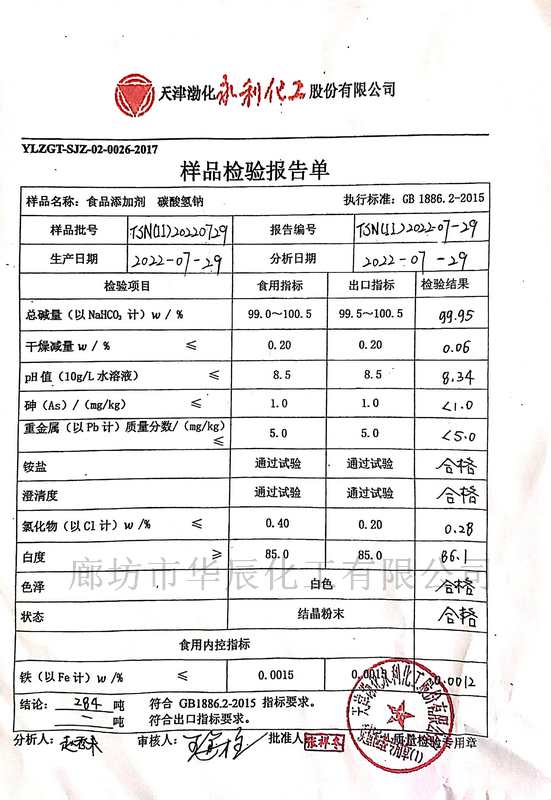 天津渤化永利化工股份有限公司
YLZGT-SJZ-02-0026-2017
样品检验报告单
样品名称：食品添加剂 碳酸氢钠 执行标准：GB 1886.2-2015
样品批号 TSN(11)20220729 报告编号 TSN(11)2022-07-29
生产日期 2022-07-29 分析日期 2022-07-29
检验项目 食用指标 出口指标 检验结果
总碱量（以 NaHCO₃ 计）w / % 99.0～100.5 99.5～100.5 99.95
干燥减量 w / % ≤ 0.20 0.20 0.06
pH 值（10g/L 水溶液） ≤ 8.5 8.5 8.34
砷（As）/（mg/kg） ≤ 1.0 1.0 <1.0
重金属（以 Pb 计）质量分数/（mg/kg） ≤ 5.0 5.0 <5.0
铵盐 通过试验 通过试验 合格
澄清度 通过试验 通过试验 合格
氯化物（以 Cl 计）w /% ≤ 0.40 0.20 0.28
白度 ≥ 85.0 85.0 86.1
廊坊市华辰化工有限公司
色泽 白色 合格
状态 结晶粉末 合格
食用内控指标
铁（以 Fe 计）w /% ≤ 0.0015 0.0015 0.0012
结论： 284 吨 符合 GB1886.2-2015 指标要求。
一 吨 符合出口指标要求。
分析人： 审核人： 批准人： 质量检验专用章
天津渤化永利化工股份有限公司